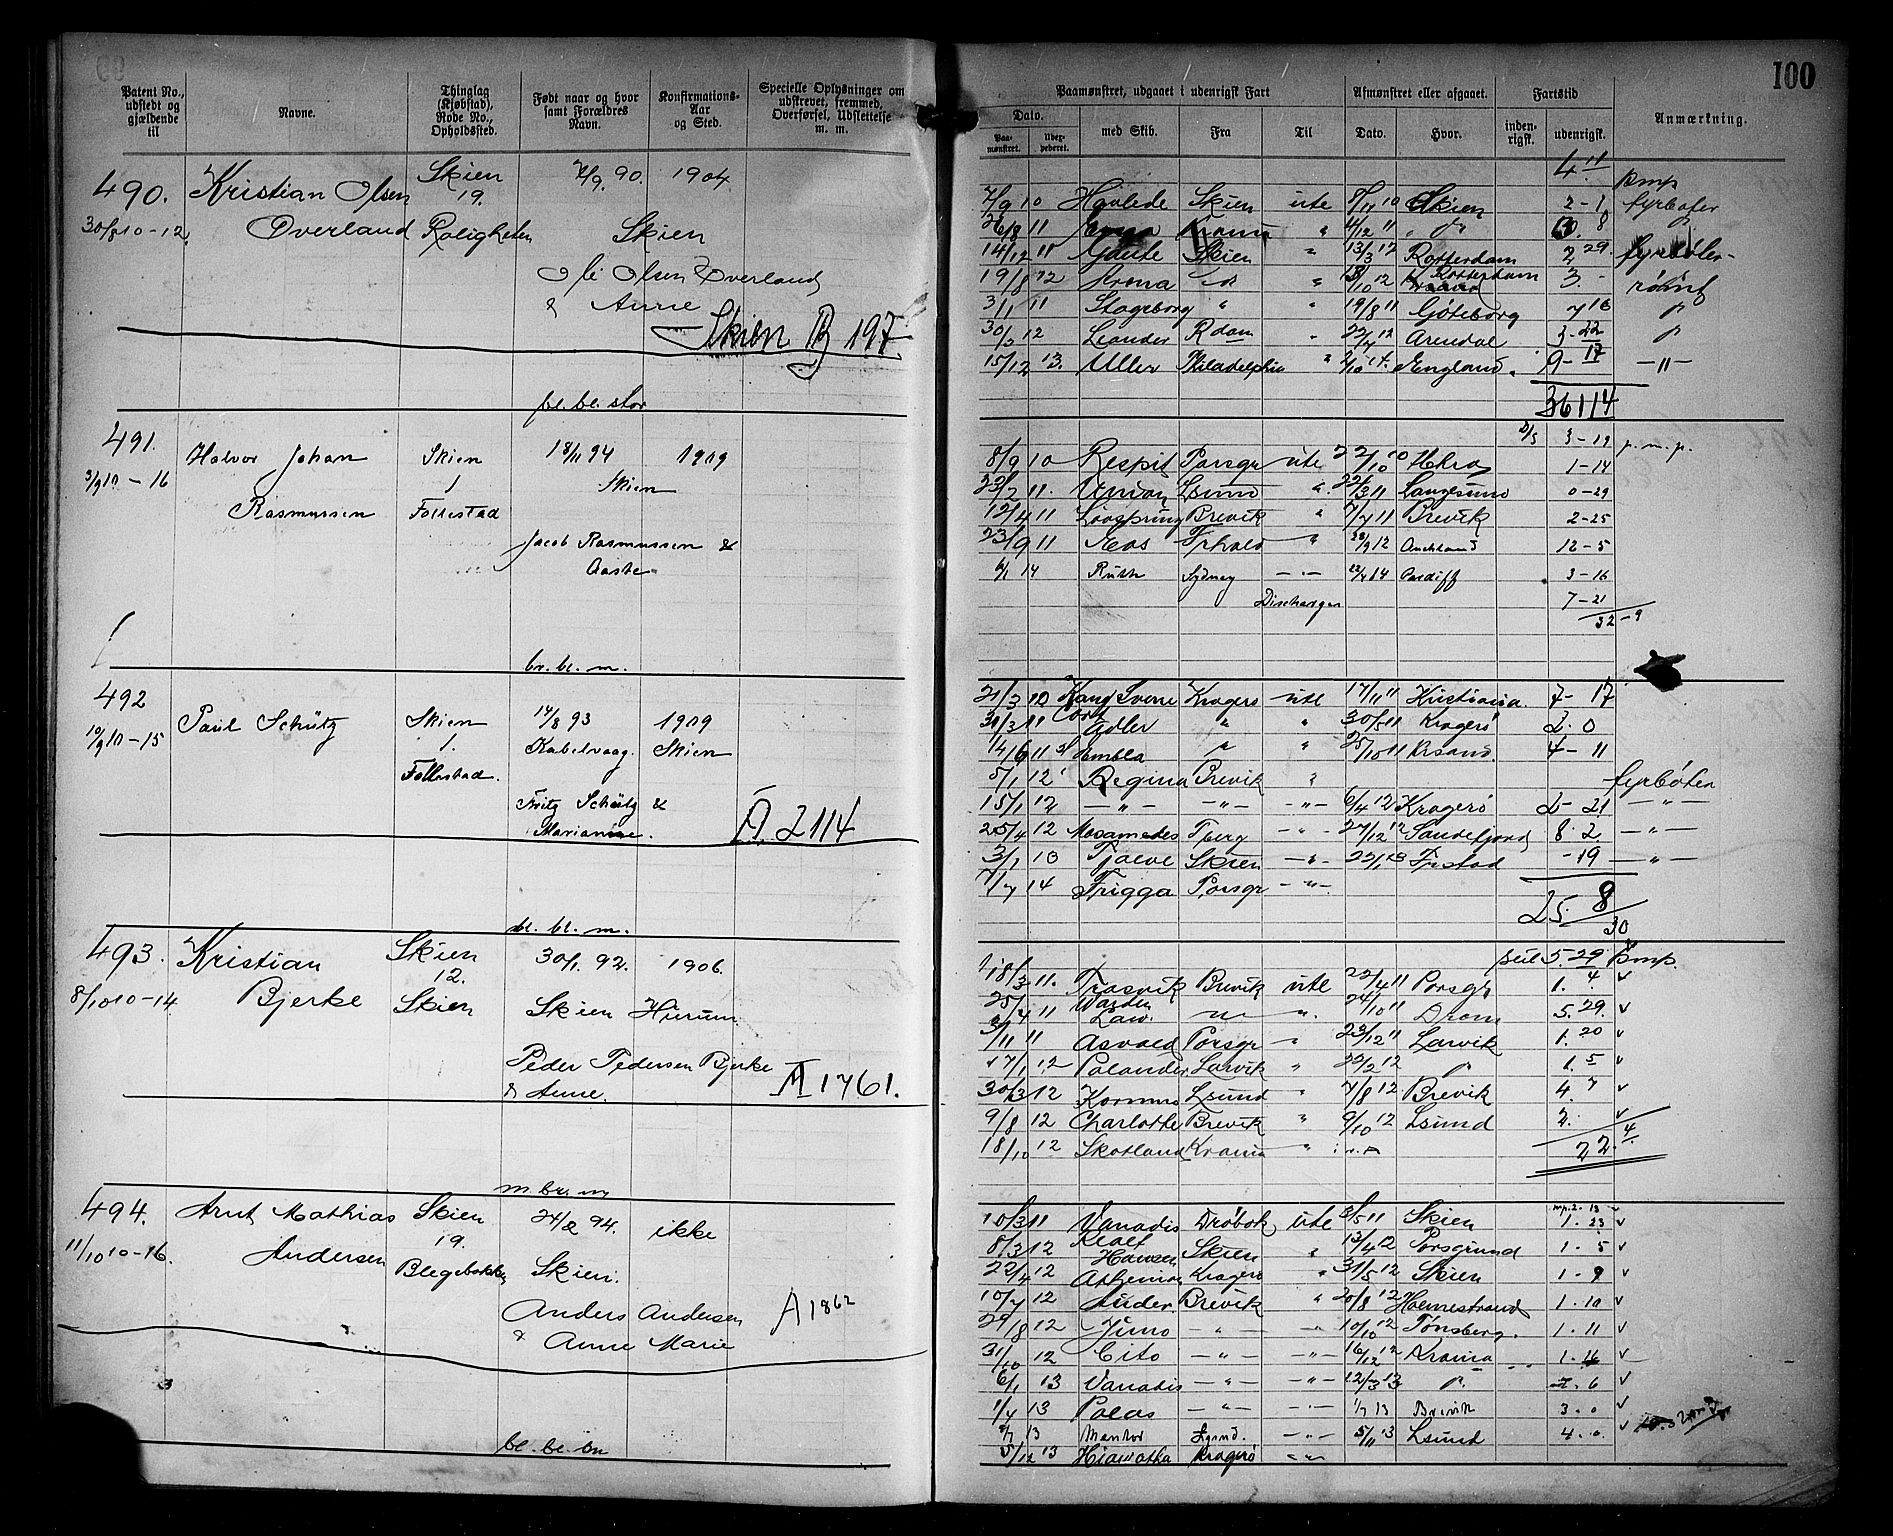 100
Patent No., udstedt og gjældende til
Navne.
Thinglag (Kjøbstad), Rode No., Opholdssted.
Født naar og hvor samt Forældres Navn.
Konfirmations-Aar og Sted.
Specielle Oplysninger om udskrevet, fremmed, Overførsel, Udslettelse m. m.
Paamønstret, udgaaet i udenrigsk Fart
Afmønstret eller afgaaet.
Fartstid
Anmærkning.
Dato.
Paa-mønstret.
med Skib.
Fra
Til
Dato.
Hvor.
inden-rigsk.
udenrigsk.
490. Kristian Olsen Skien 7/9. 90. 1904
19.
30/8 10-12. Overland Roligheten Skien
Ole Olsen Overland
& Anne
Skien B 197
bl. bl. stor
4. 11
7/9 10 Havlede Skien ute 8/11 10 Skien 2-1 fyrbøter
14/12 11 Gaute Skien " 13/3 12 Rotterdam 2 29
3/1 11 Stageborg " " 19/8 11 Göteborg 7 16
30/3 12 Leander Rdam " 22/7 12 Arendal 3-22
15/12 13. Uller Philadelphia " 2/10 14. England. 9-17 -"-
36 114
491. Halvor Johan Skien 18/11 94 1909
3/9 10-16 1 Skien
Rasmussen Follestad
Jacob Rasmussen &
Aaste
br. bl. m.
3-19 p.m.p.
8/9 10 Respit Porsgr ute 22/10 10 1-14
23/2 11. Lsund ". 22/3 11 Langesund 0-29
12/4 11 Brevik " 7/7 11 Brevik 2-25
23/9 11 Frhald " 12-5
6/1 14 Ruth Sydney -"- 22/4 14 Cardiff 3-16
Discharger 7-21
32-9
492 Paul Schütz Skien 14/8 93 1909
10/9 10-15 1. Kabelvaag. Skien
Follestad.
Fritz Schütz &
Marianne.
A 2114
bl. bl. m.
21/3 10 Kong Sverre Kragerø ute 17/11 11 Kristiania 7-17
31/3 11 Adler " " 30/5 11 Kragerø 2. 0
14/6 11 Embla " " 25/10 11 Krsand. 4-11
5/1 12 Regina Brevik " fyrbøter
15/1 12 -"- -"- -"- 6/4 12 Kragerø 2-21 -"-
25/4 12 Mosamedes Tberg -"- 27/12 12 Sandefjord 8. 2. -"-
Skien -"- Frstad -19 -"-
7/7 14 Frigga Porsgr -"-
25. 8/30
493. Kristian Skien 30/1. 92. 1906.
12.
8/10 10-14 Bjerke Skien Skien Hurum.
Peder Pedersen Bjerke
& Anne.
A 1761.
m. br. m
seil 5. 29 pmp.
18/3 11. Trosvik Brevik ute 22/4 11 Porsgr 1. 4 v
Warden
25/4 11 Law. 24/10 11 Dram 5. 29. v
3/11 11 Asvald Porsgr " 23/12 11 Larvik 1. 20 v
17/1 12 Polander Larvik " 22/2 12 1. 5 v
30/3 12 Lsund " 7/8 12 Brevik 4. 7 v
9/8 12 Charlotte Brevik " 9/10 12 Lsund 2. v
18/10 12 Skotland Krania "
22. 4
494. Arnt Mathias Skien 24/2 94. ikke
19.
11/10 10-16. Andersen Blegebakken Skien.
Anders Andersen
& Anne Marie
A 1862
bl. bl. bn
10/3 11 Vanadis Drøbak ute 3/5 11 Skien 1. 23 v
8/3 12 Hansen Skien " 13/4 12 Porsgrund 1. 5 v
22/4 12 Kragerø " 31/5 12 Skien 1-9 v
10/7 12 Brevik " 20/8 12 Holmestrand 1. 10 v
29/8 12 Juno -"- -"- 10/10 12 Tønsberg. 1. 11 v
31/10 12 Cito -"- -"- 16/12 12 Krania 1. 16 v
6/1 13 Vanadis -"- -"- 12/3 13 2. 6 v
1/4 13 Palas -"- -"- 1/7 13 Brevik 3. 0 v
7/7 13 Mentor Lsund. -"- 5/11 13 Lsund 4. 0. v
5/12 13 Hiawatha Kragerø -"-